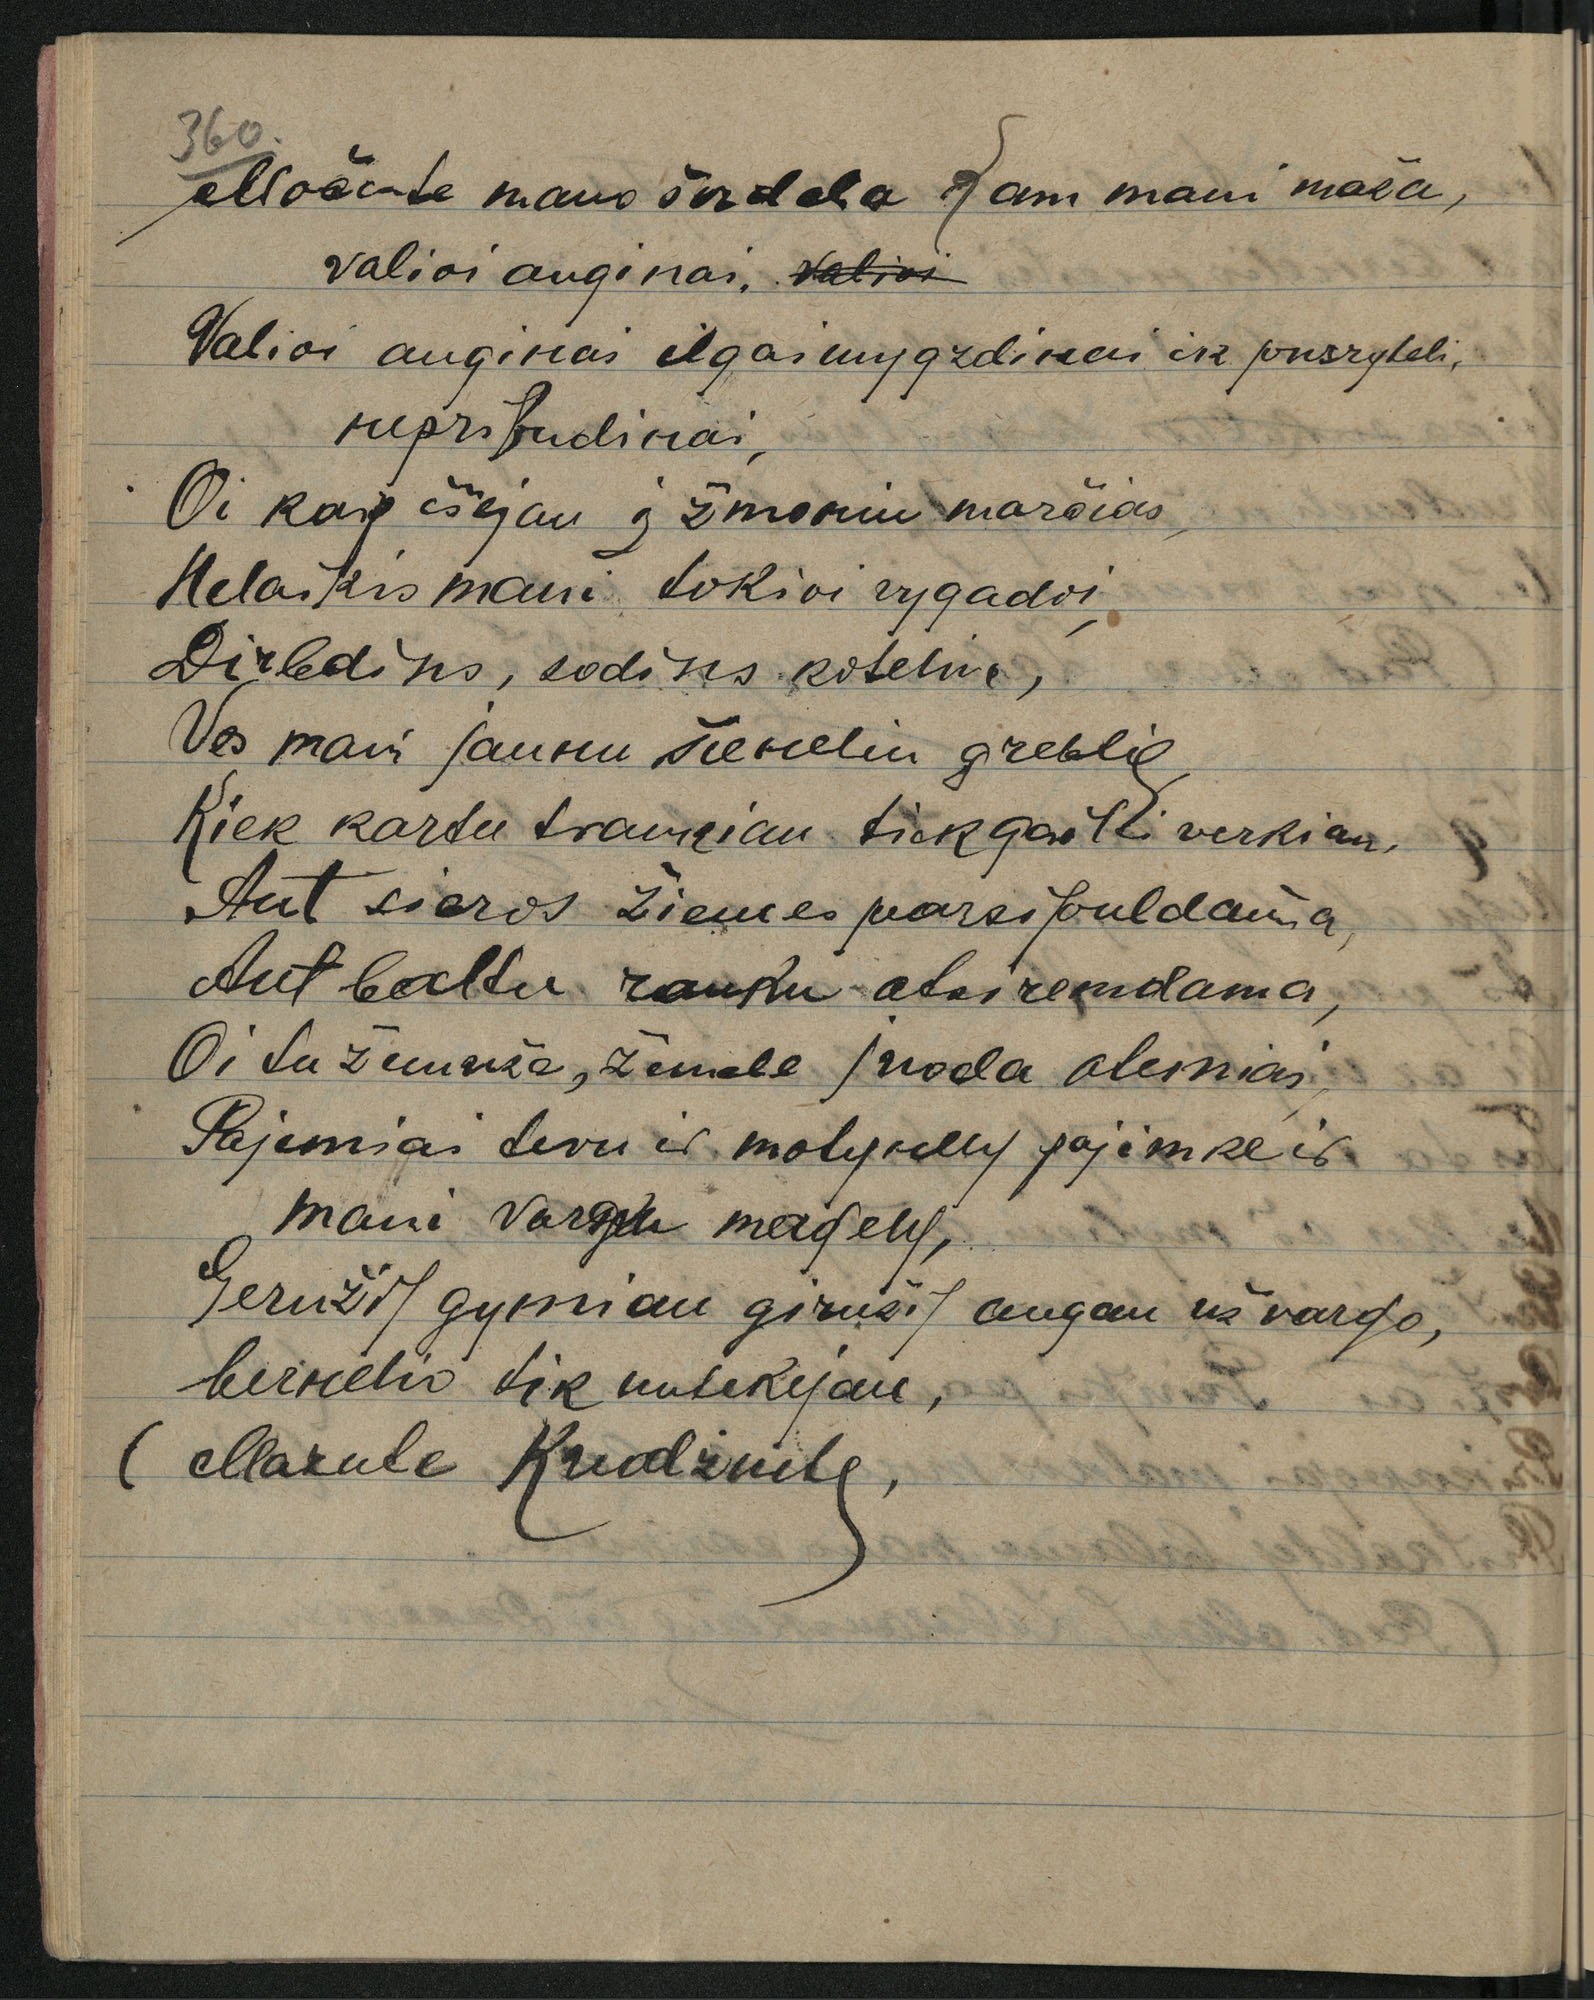 360.
Močiute mano širdela Kam mani maža,
valioi auginai. valioi
Valioi auginai ilgai mygzdinai ik pusryteli,
nepribudinai,
Oi kaip išėjau į žmoniu marčias,
Nelaikis mani tokioi vygadoi,
Dirbdins, sodins kotelius,
Ves mani jaunu šieneliu greblię
Kiek kartu traukiau tiek gailei verkiau,
Ant sieros žiemes parsipuldama,
Ant baltu ranku atsiremdama,
Oi tu žemuže, žemele juoda atemiai,
Pajemiai tevu ir motynely pajimke ir
mani vargu magely,
Geružij gymiau giružij augau už vargo,
bernelio tik nutekijau,
( Marute Kruodžiute,